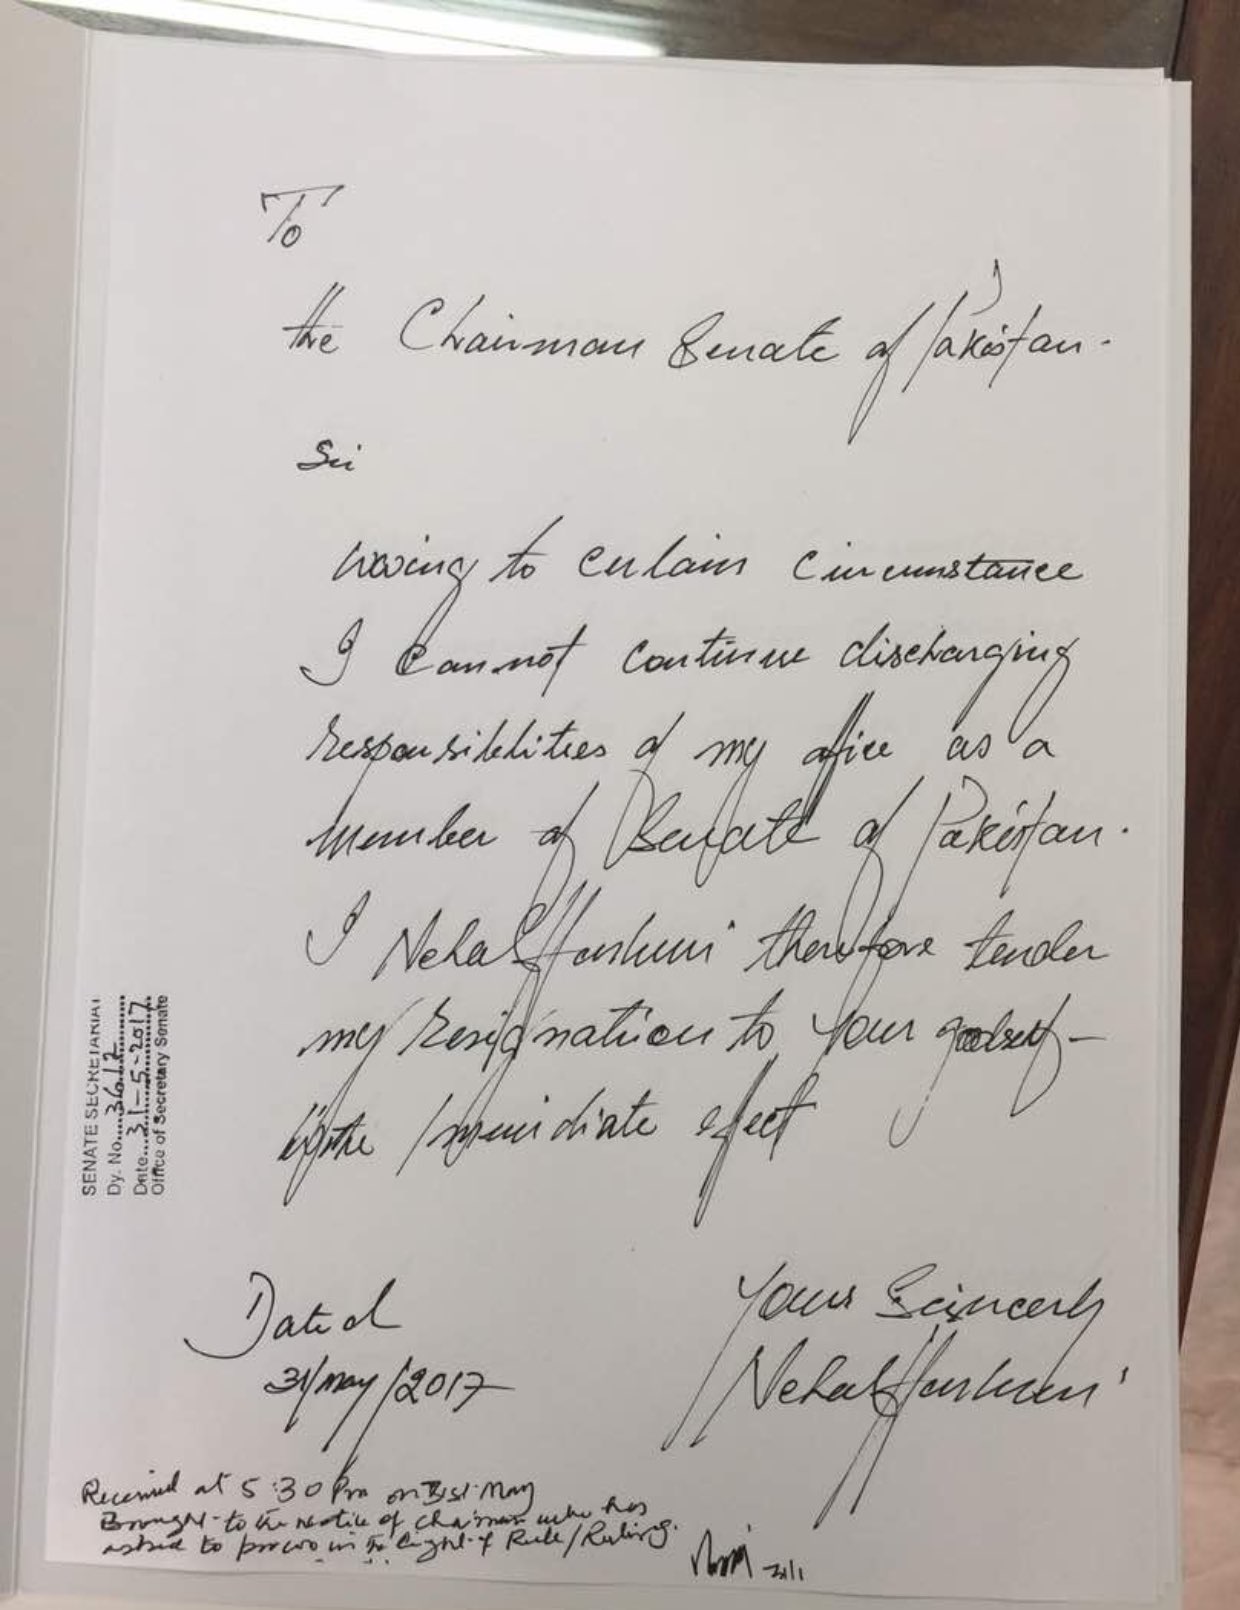 To
the Chairman Senate of Pakistan.
Sir
owing to certain circumstance
I cannot continue discharging
responsibilities of my office as a
member of Senate of Pakistan.
I Nehal Hashmi therefore tender
my resignation to your goodself -
with immediate effect
Dated
31/may/2017
Yours Sincerly
Nehal Hashmi
SENATE SECRETARIAT
Dy. No.....3612.....
Date....31-5-2017
Office of Secretary Senate
Received at 5:30 Pm on 31st May
Brought to the notice of Chairman who has
asked to process in the light of Rule/Ruling.